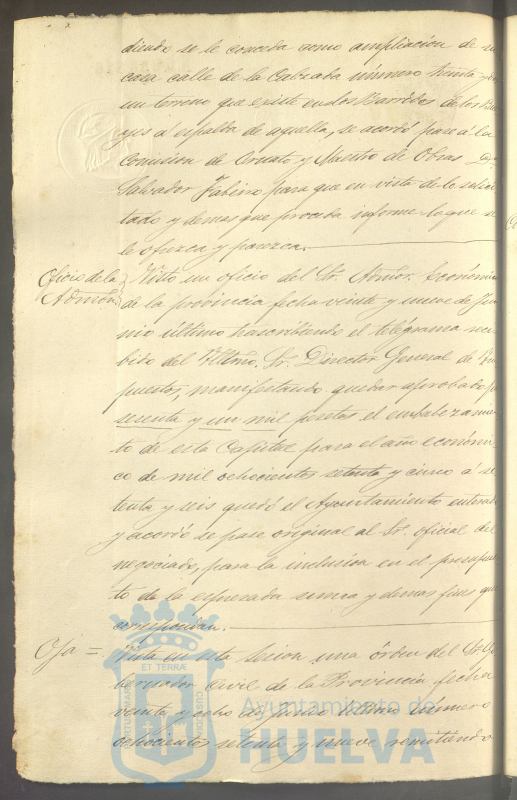 diendo se le conceda como ampliación de su
casa calle de la Calzada número treinta y
un terreno que existe en los Barridos de los
yes á espalda de aquella, se acordó pase á la
Comision de Ornato y Maestro de Obras
Salvador para que en vista de lo solici
tado y demas que proceda informe lo que se
le ofrezca y parezca.
Oficio de la
Admón.
Visto un oficio del Sr. Admor. Económico
de la provincia fecha veinte y nueve de Ju
nio último trascribiendo el telégrama reci
bido del Iltmo. Sr. Director General de Im
puestos, manifestando quedar aprobado p
sesenta y un mil pesetas el encabezamien
to de esta Capital para el año económi
co de mil ochocientos setenta y cinco á se
tenta y seis quedó el Ayuntamiento enterado
y acordó se pase original al Sr. oficial del
negociado, para la inclusion en el presupues
to de la espresada suma y demas fines que
correspondan.
Vista en esta sesion una órden del Sr. Go
bernador Civil de la Provincia fecha
veinte y ocho de Junio último número
ochocientos setenta y nueve remitiendo
ET TERRÆ
Ayuntamiento de
HUELVA